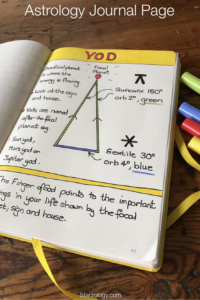 Astrology Journal Page
YOD
Focal
Planet
is where the
energy is flowing
look at the sign
and house.
Yods are named
after the focal
planet eg
Sun yod,
Mars yod or
Jupiter yod.
Quincunx 150°
orb 2°, green
Sextile 30°
orb 4°, blue
The Finger of God points to the important
things in your life shown by the focal
planet, sign and house.
Starzology.com